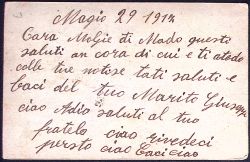 Magio 29 1914
Cara Molgie di Mado questi
saluti an cora di cui e ti atedo
colle tue notose tati saluti e
Baci del tuo Marito Giusepe
ciao Adio saluti al tuo
fratelo ciao rivedeci
persto ciao Baci ciao